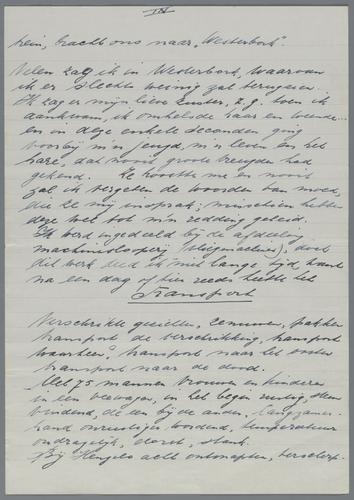 IV
trein, bracht ons naar "Westerbork".
Velen zag ik in Westerbork, waarvan
ik er slechts weinig zal terugzien.
Ik zag er mijn lieve zuster, z.g. toen ik
aankwam, ik omhelsde haar en weende
en in deze enkele seconden ging
voorbij m'n jeugd, m'n leven en het
hare, dat nooit groote vreugden had
gekend. Ze troostte me en nooit
zal ik vergeten de woorden van moed,
die ze mij insprak; misschien hebben
deze wel tot m'n redding geleid.
Ik werd ingedeeld bij de afdeeling
machinesloperij (vliegmachines), doch
dit werk deed ik niet lange tijd, want
na een dag of tien reeds heette het
Transport
Verschrikte gezichten, zenuwen, pakken
transport de verschrikking, transport
waarheen?, transport naar het oosten
transport naar de dood.
Met 75 mannen vrouwen en kinderen
in een veewagen, in het begin rustig, steun
vindend, de een bij de ander, langzamer-
hand onrustiger wordend, temperatuur
ondragelijk, dorst, stank.
Bij Hengelo acht ontsnapten, verscherp-